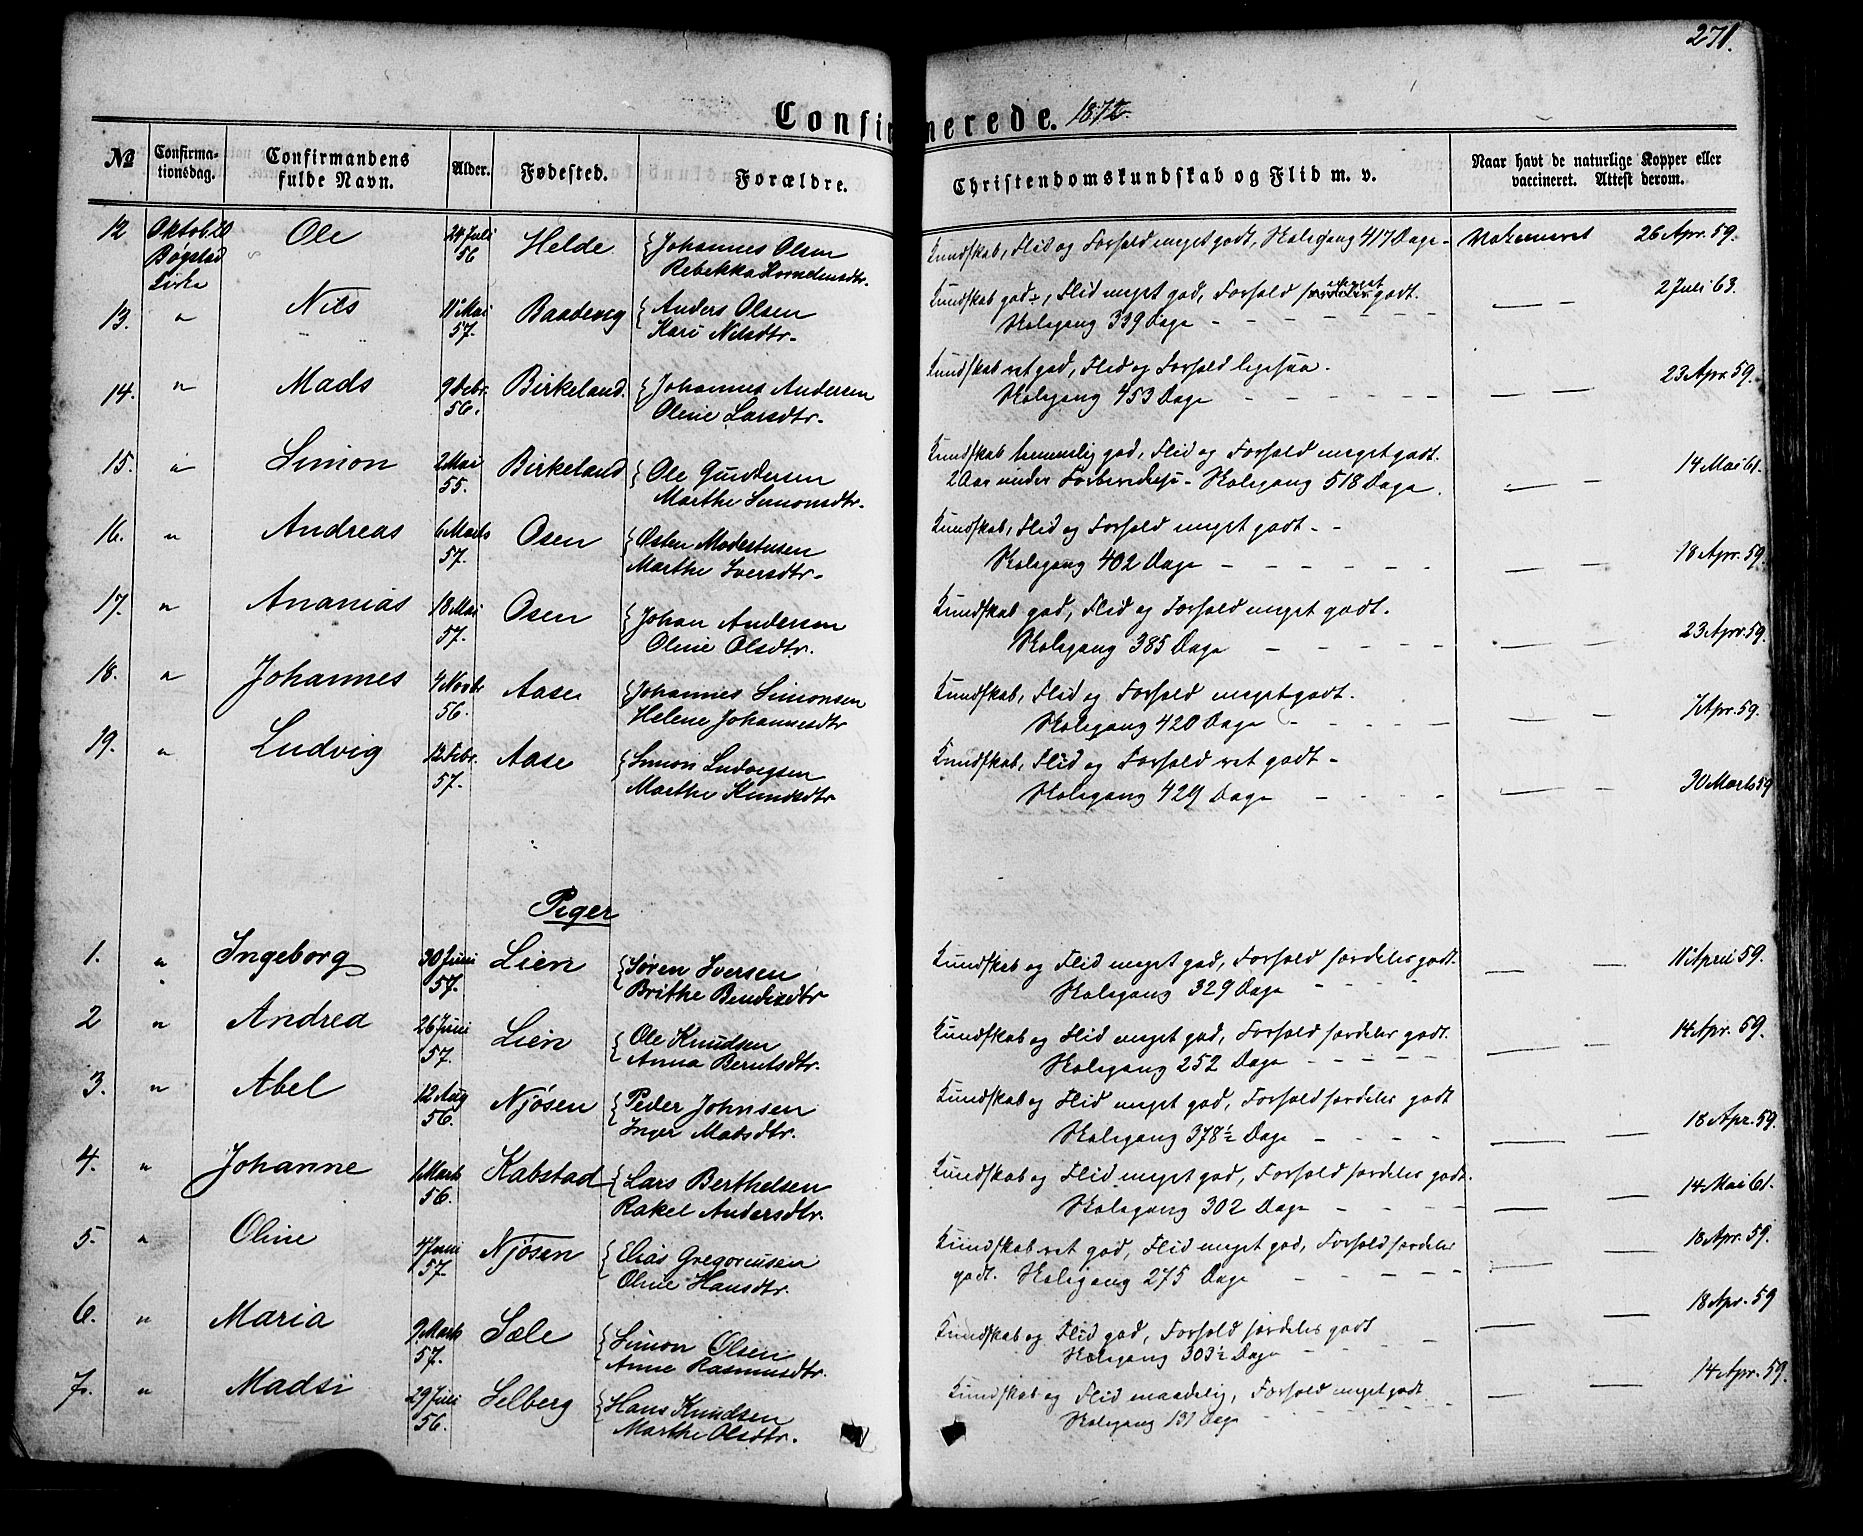 271.
Confirmerede. 1872.
No Confirmationsdag. Confirmandens fulde Navn. Alder. Fødested. Forældre. Christendomskundskab og Flid m. v. Naar havt de naturlige Kopper eller vaccineret. Attest derom.
12 Oktob. Ole 24 Juli 56 Helde Johannes Olsen Kundskab, Flid og Forhold meget godt, Skolegang 417 Dage - Vakcineret 26 Apr. 59.
Kirke Rebekka
13. " Nils 11 Mai 57. Baadevig Anders Olsen Kundskab god, Flid meget god, Forhold godt. — — 2 Juli 63.
Kari Nilsdtr. Skolegang 339 Dage
14. " Mads 9 Febr. 56. Birkeland. Johannes Andersen Kundskab ret god, Flid og Forhold ligesaa. — — 23 Apr. 59.
Oline Larsdtr. Skolegang 453 Dage
15. " Simon 2 Mai 55. Birkeland Ole Gundersen Kundskab temmelig god, Flid og Forhold meget godt. — — 14 Mai 61.
Marthe Simonsdtr. 2 Aar under Forberedelse - Skolegang 518 Dage.
16. " Andreas 6 Marts 57. Osen Østen Modestusen Kundskab, Flid og Forhold meget godt - - — — 18 Apr. 59.
Marthe Iversdtr. Skolegang 402 Dage
17. " Ananias 18 Mai 57. Osen Johan Andersen Kundskab god, Flid og Forhold meget godt. — — 23 Apr. 59.
Oline Olsdtr. Skolegang 385 Dage
18. " Johannes 4 Novbr 56. Aase Johannes Simonsen Kundskab, Flid og Forhold meget godt. — — 1 Apr. 59.
Helene Johannesdtr Skolegang 420 Dage
19. " Ludvig 12 Febr. 57. Aase Simon Ludvigsen Kundskab, Flid og Forhold ret godt - — — 30 Marts 59
Marthe Knudsdtr Skolegang 429 Dage
Piger
1. " Ingeborg 30 Juni 57. Lien Søren Iversen Kundskab og Flid meget god, Forhold særdeles godt. — — 11 April 59.
Brithe Bendixdtr Skolegang 329 Dage
2 " Andrea 26 Juni 57. Lien Ole Knudsen Kundskab og Flid meget god, Forhold særdeles godt. — — 14 Apr. 59.
Anna Berntsdtr. Skolegang 252 Dage
3. " Abel 12 Aug 56. Njøsen Peder Johnsen Kundskab og Flid meget god, Forhold særdeles godt — — 18 Apr. 59.
Inger Madsdtr. Skolegang 378½ Dage
4. " Johanne 1 Marts 56. Kabstad Lars Berthelsen Kundskab og Flid meget god, Forhold særdeles godt. — — 14 Mai 61.
Rakel Andersdtr. Skolegang 302 Dage
5. " Oline 4 Juni 57. Njøsen Elias Gregoriusen Kundskab ret god, Flid meget god, Forhold særdeles — — 18 Apr. 59.
Oline Hansdtr. godt. Skolegang 275 Dage
6. " Maria 9 Marts 57. Sæle Simon Olsen Kundskab og Flid god, Forhold særdeles godt — — 18 Apr. 59
Anne Rasmusdtr. Skolegang 303½ Dage
7. " Madsi 29 Juli 56. Selberg Hans Knudsen Kundskab og Flid maadelig, Forhold meget godt — — 14 Apr. 59.
Marthe Olsdtr. Skolegang 131 Dage